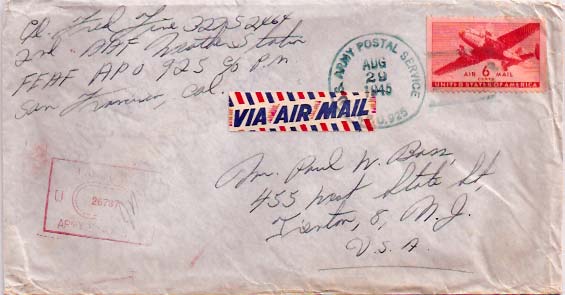 Cpl. Fred Fine 32752464
2nd AAF Weather Station
FEAF APO 925 c/o P.M
San Francisco, Cal.
U.S. ARMY POSTAL SERVICE
AUG
29
1945
A.P.O. 925
AIR 6 MAIL
CENTS
UNITED STATES OF AMERICA
VIA AIR MAIL
Mrs. Paul W. Bass,
455 West State St,
Trenton, 8, N.J.
U.S.A.
U
26787
ARMY